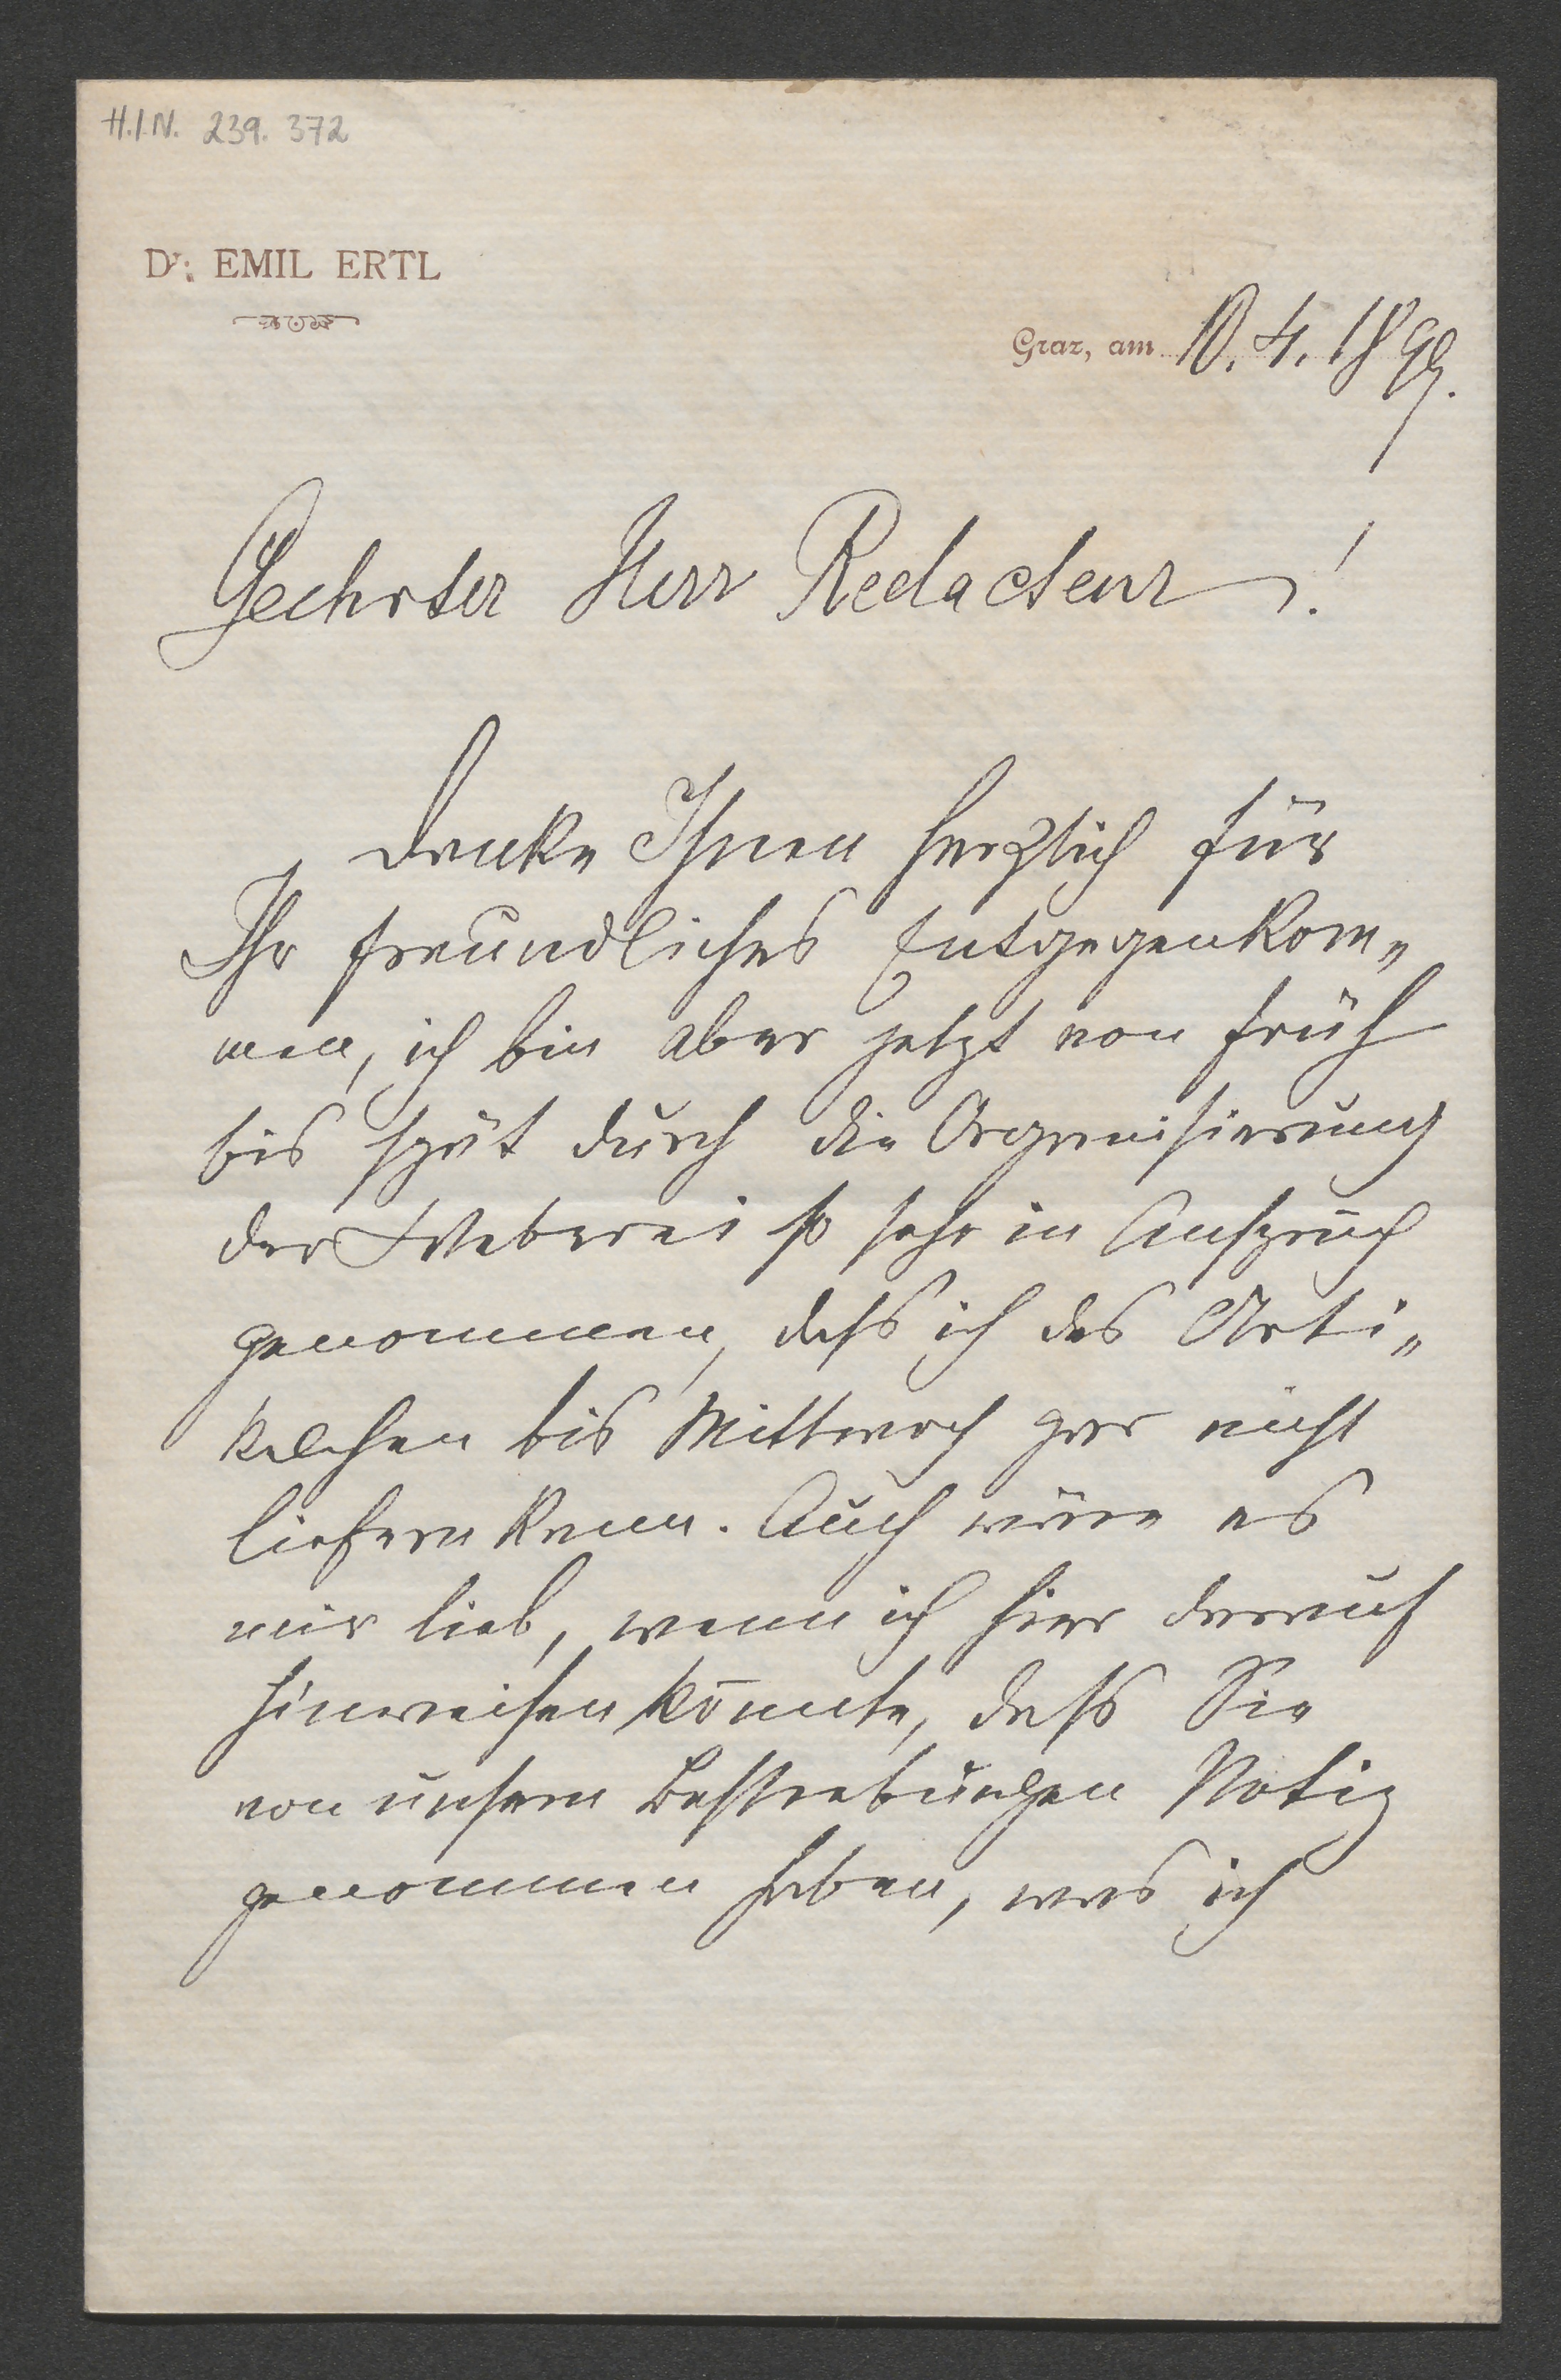 H.I.N. 239.372
Dr. EMIL ERTL
Graz, am 10.4.1899.
Geehrter Herr Redacteur!
danke Ihnen herzlich für
Ihr freundliches Entgegenkom„
men, ich bin aber jetzt von früh
bis spät durch die Organisierung
der Weberei so sehr in Anspruch
genommen, dass ich das Arti„
kelchen bis Mittwoch gar nicht
liefern kann. Auch wäre es
mir lieb, wenn ich hier darauf
hinweisen könnte, dass Sie
von unsern Bestrebungen Notiz
genommen haben, was ich